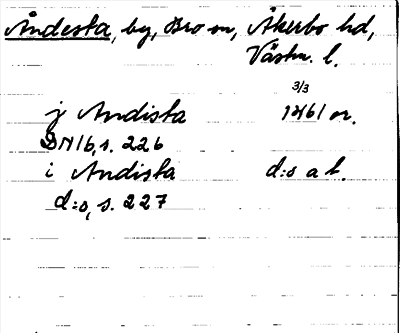 Åndesta, by, Bro sn, Åkerbo hd,
Västm. l.
3/3
j Andista 1461 or.
DN 16, s. 226
i Andista d:o a b.
d:o, s. 227